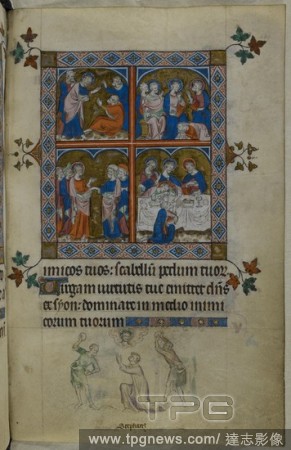 imicos tuos: scabellū pedum tuor
Uirgam uirtutis tue emittet dn̄s
ex syon: dominare in medio inimi
corum tuorum
TPG
www.tpgnews.com / 達志影像